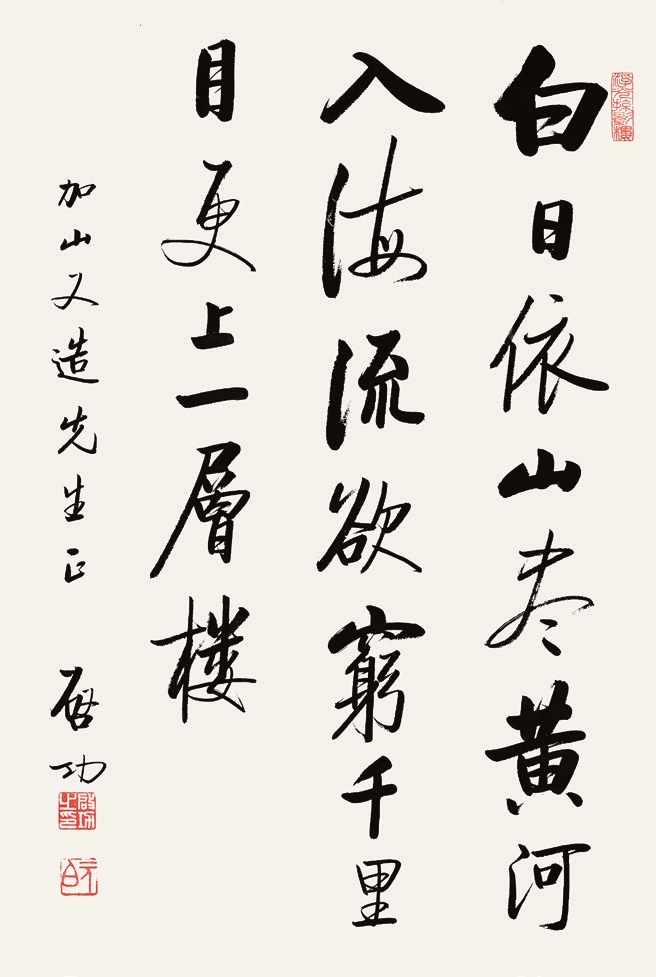 白日依山尽黄河
入海流欲窮千里
目更上一層楼
加山又造先生正
启功
启功之印
元白